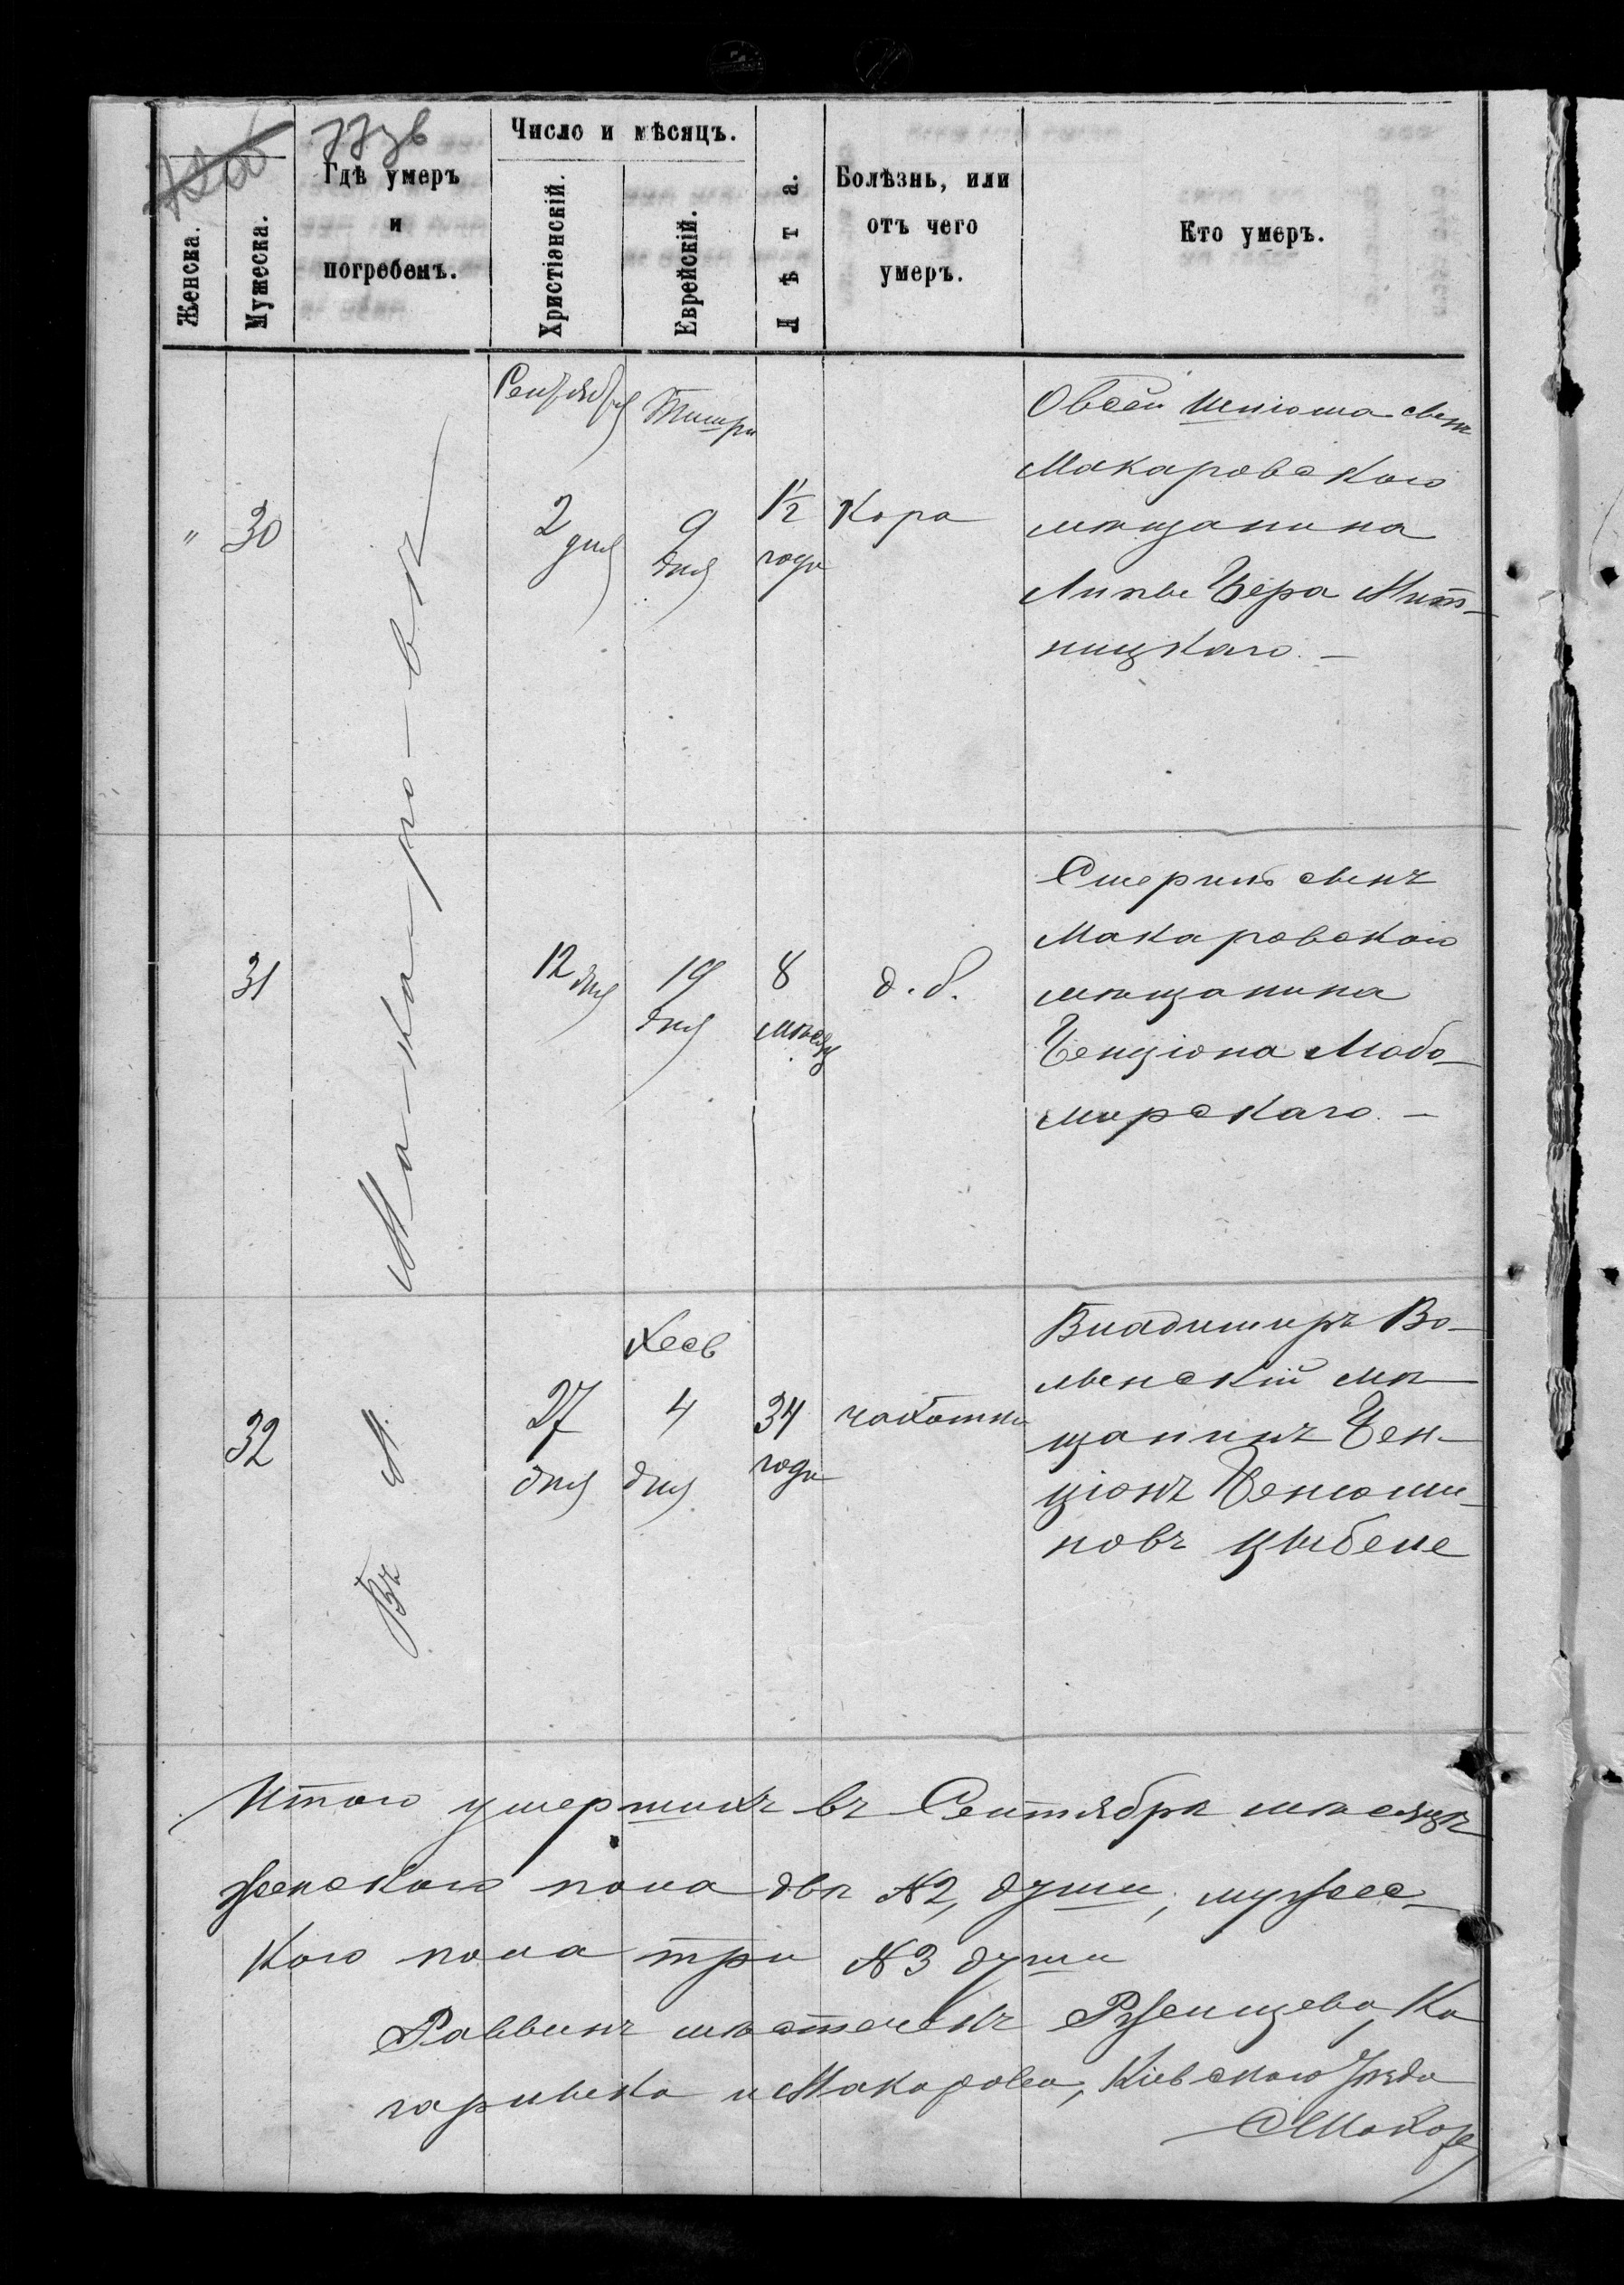 Число и мѣсяцъ.
Женска.
Мужеска.
Гдѣ умеръ
и
погребенъ.
Христіанскій.
Еврейскій.
Лѣта.
Болѣзнь, или
отъ чего
умеръ.
Кто умеръ.
Въ М. Ма-ка-ро-вѣ
Сентября
Тишри
" 30
2 дня
9 дня
1½ года
Кора
Овсей Шлюма сынъ
Макаровского
мѣщанина
Липы Бера Мит-
ницкаго. -
31
12 дня
19 дня
8 мѣсяц
д. б.
Шмериль сынъ
Макаровского
мѣщанина
Бенціона Любо-
мирскаго. -
Хесв
32
27 дня
4 дня
34 года
чахотки
Владимиръ Во-
лынскій мѣ-
щанинъ Бен-
ціонъ Беніоми-
новъ
Итого умершихъ въ Сентябрѣ мѣсяцѣ
женского пола двѣ №2, души, мужес-
кого пола три №3 души
Раввинъ мѣстечекъ Рженщева, Ка
гарлыка и Макарова, Кіевского Уѣзда